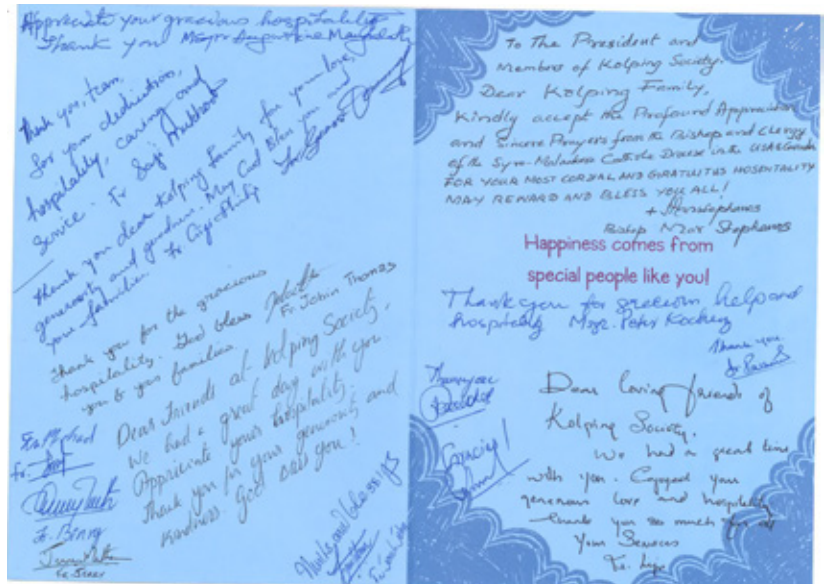 Appreciate your gracious hospitality
Thank you Msgr Augustine
Thank you, team,
for your dedication,
hospitality, caring and
Service. Fr Saji
Thank you dear Kolping family for your love,
generosity and goodness. May God Bless you and
your families. Fr
Thank you for the gracious
hospitality. God bless
you & your families. Fr. Jobin Thomas
Dear Friends at Kolping Society,
We had a great day with you
Appreciate your hospitality.
Thank you for your generosity and
kindness. God bless you!
Fr. Michael
Fr.
Fr. Benny
Fr. Jerry
To The President and
Members of Kolping Society.
Dear Kolping Family,
Kindly accept the Profound Appreciation
and Sincere Prayers from the Bishop and Clergy
of the Syro-Malankara Catholic Diocese in the USA & Canada
FOR YOUR MOST CORDIAL AND GRATUITUS HOSPITALITY
MAY REWARD AND BLESS YOU ALL!
Bishop Mar Stephanos
Happiness comes from
special people like you!
Thank you for gracious help and
hospitality Msgr. Peter Kochery
Thank you
Thank you
Gracias!
Dear loving friends of
Kolping Society,
We had a great time
with you. Enjoyed your
generous love and hospitality
thank you so much for all
Your Services
Fr.